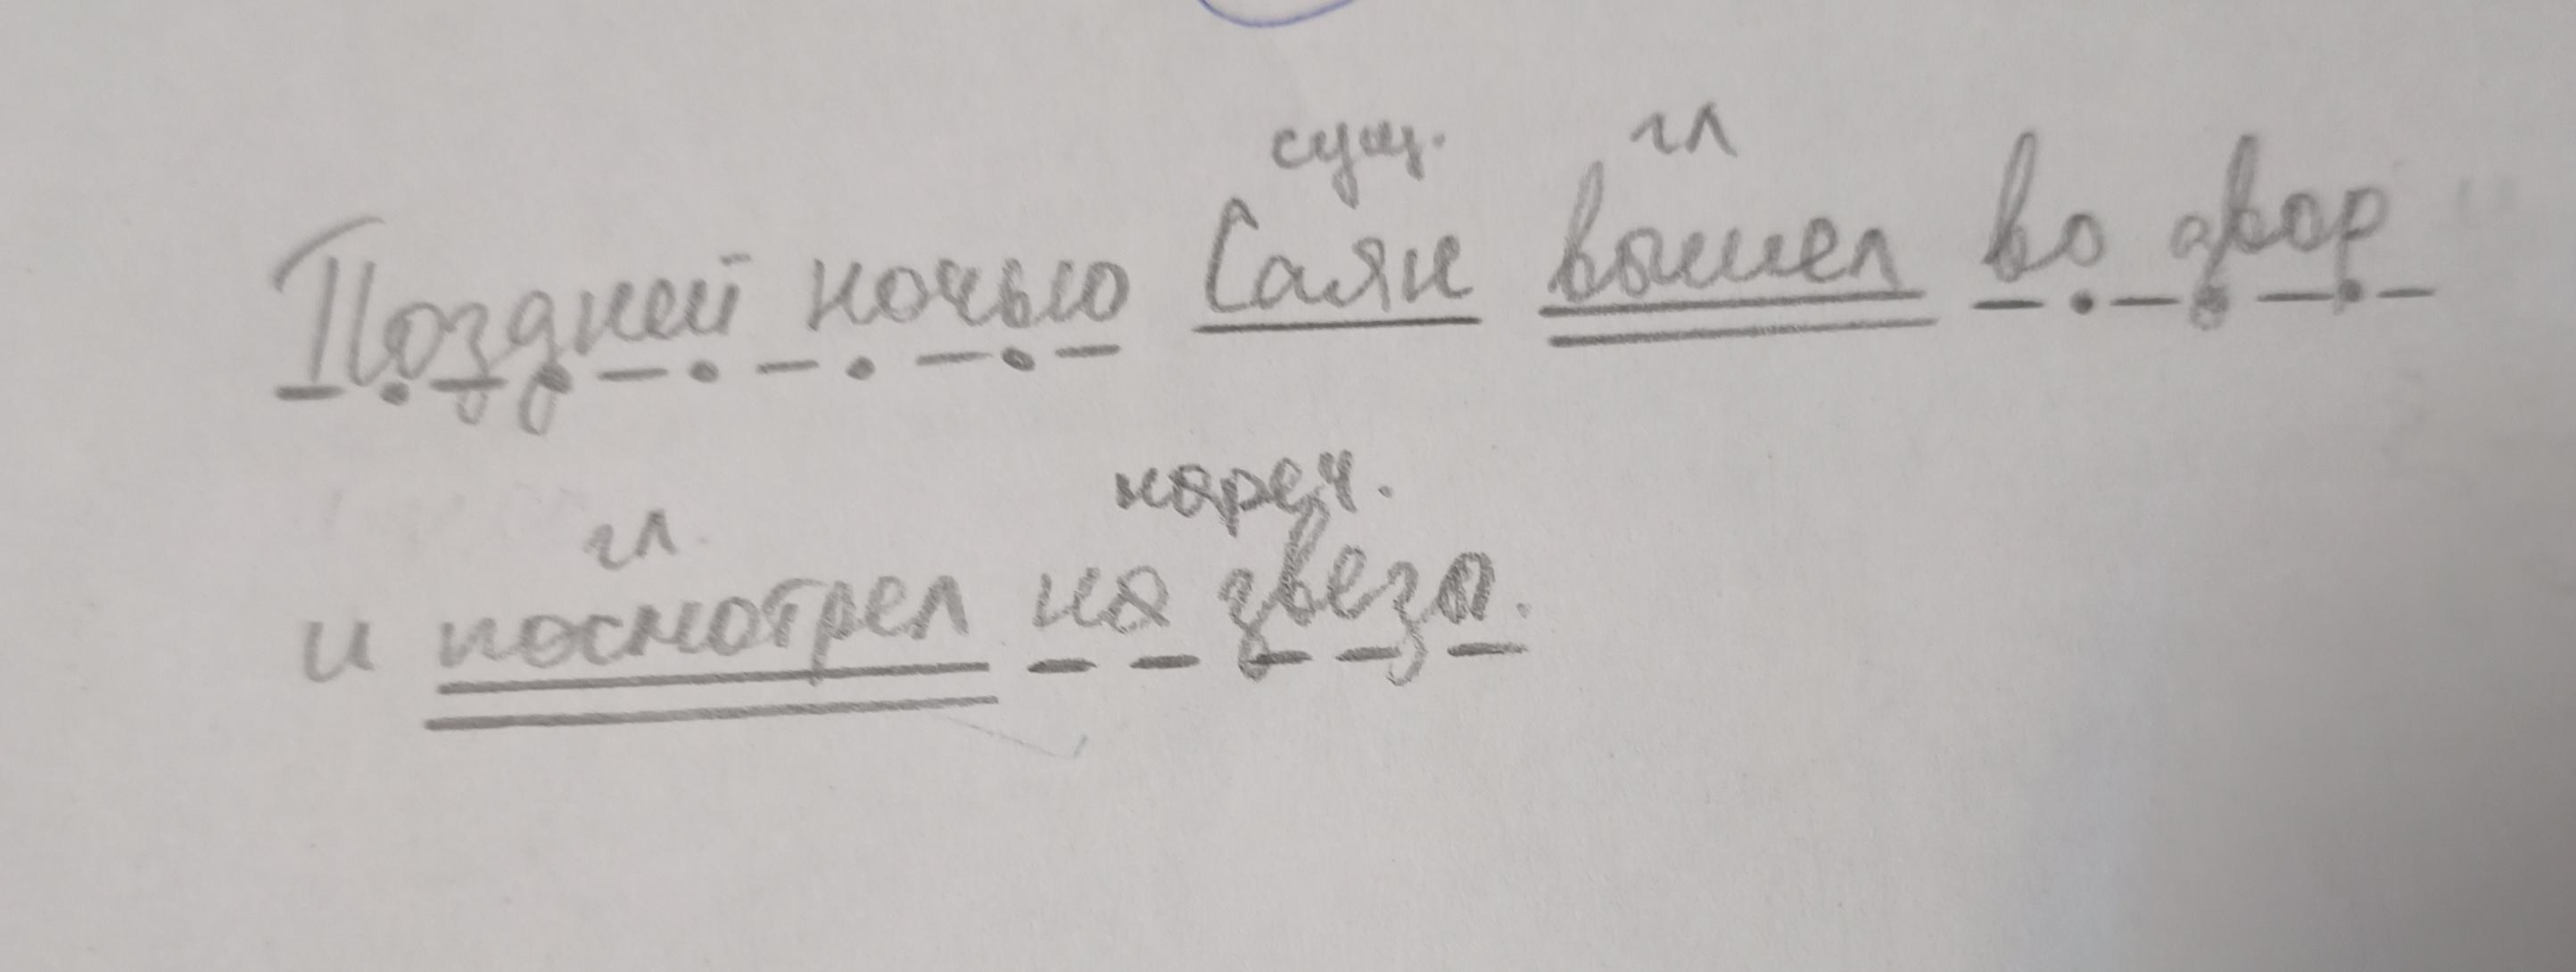 сущ. гл
Поздней ночью Саян вышел во двор
гл. нареч.
и посмотрел на звезд.